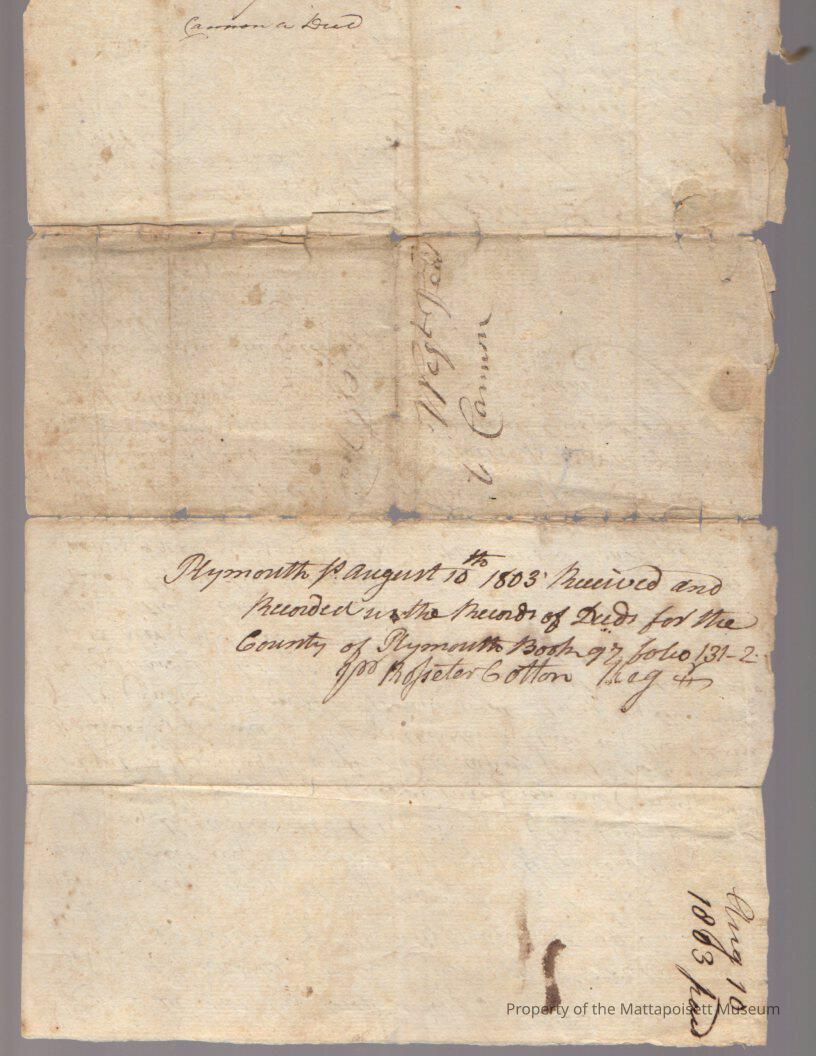 Cannon a Deed
West Deed
Cannon
Plymouth ss. August 10th 1803 Received and
Recorded in the Records of Deeds for the
County of Plymouth Book 97 folio 131-2.
pr Rosseter Cotton Regtr
Aug 10
1803
Property of the Mattapoisett Museum